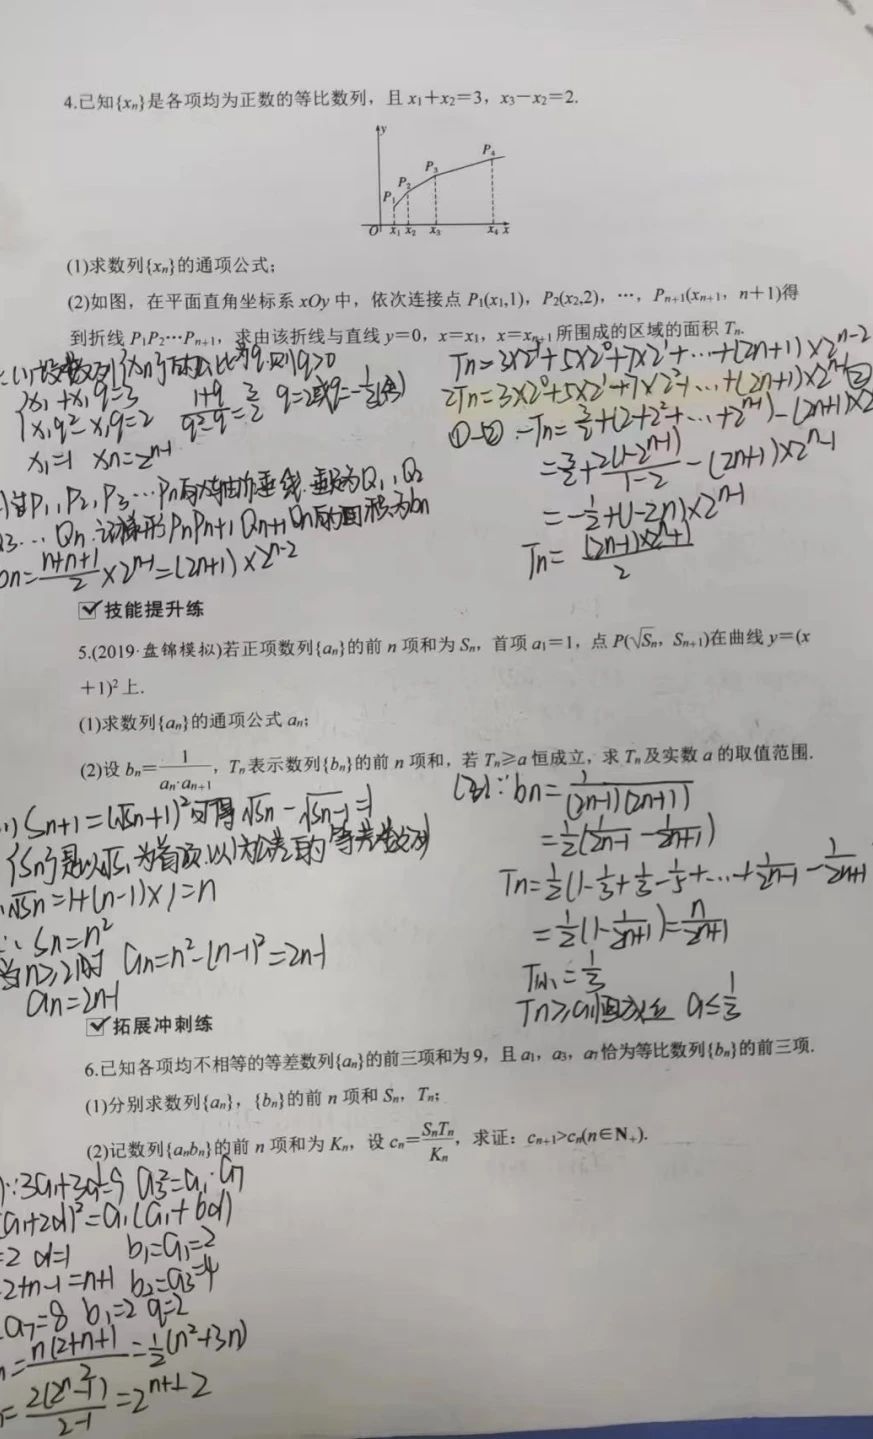 4.已知{xₙ}是各项均为正数的等比数列，且 x₁+x₂=3，x₃-x₂=2.
y
P₁ P₂ P₃ P₄
O x₁ x₂ x₃ x₄ x
(1)求数列{xₙ}的通项公式；
(2)如图，在平面直角坐标系 xOy 中，依次连接点 P₁(x₁,1)，P₂(x₂,2)，…，Pₙ₊₁(xₙ₊₁，n+1)得
到折线 P₁P₂…Pₙ₊₁，求由该折线与直线 y=0，x=x₁，x=xₙ₊₁所围成的区域的面积 Tₙ.
(1)设数列{xₙ}的公比为q.则q>0
x₁+x₁q=3
x₁q²-x₁q=2 (1+q)/(q²-q)=3/2 q=2或q=-1/3(舍)
x₁=1 xₙ=2ⁿ⁻¹
过P₁,P₂,P₃…Pₙ向x轴作垂线.垂足为Q₁,Q₂
Q₃…Qₙ.记梯形PₙPₙ₊₁Qₙ₊₁Qₙ的面积为bₙ
bₙ=(n+n+1)/2×2ⁿ⁻¹=(2n+1)×2ⁿ⁻²
Tₙ=3×2⁻¹+5×2⁰+7×2¹+…+(2n+1)×2ⁿ⁻²
2Tₙ=3×2⁰+5×2¹+7×2²+…+(2n+1)×2ⁿ⁻¹②
①-② -Tₙ=3/2+(2+2²+…+2ⁿ⁻¹)-(2n+1)×2
=3/2+2(1-2ⁿ⁻¹)/(1-2)-(2n+1)×2ⁿ⁻¹
=-1/2+(1-2n)×2ⁿ⁻¹
Tₙ=((2n-1)×2ⁿ+1)/2
技能提升练
5.(2019·盘锦模拟)若正项数列{aₙ}的前 n 项和为 Sₙ，首项 a₁=1，点 P(√Sₙ，Sₙ₊₁)在曲线 y=(x
+1)²上.
(1)求数列{aₙ}的通项公式 aₙ；
(2)设 bₙ=1/(aₙ·aₙ₊₁)，Tₙ表示数列{bₙ}的前 n 项和，若 Tₙ≥a 恒成立，求 Tₙ及实数 a 的取值范围.
Sₙ₊₁=(√Sₙ+1)²可得√Sₙ-√Sₙ₋₁=1
{Sₙ}是以√S₁为首项.以1为公差的等差数列
√Sₙ=1+(n-1)×1=n
∴Sₙ=n²
当n≥2时 aₙ=n²-(n-1)²=2n-1
aₙ=2n-1
(2)∵bₙ=1/((2n-1)(2n+1))
=1/2(1/(2n-1)-1/(2n+1))
Tₙ=1/2(1-1/3+1/3-1/5+…+1/(2n-1)-1/(2n+1)
=1/2(1-1/(2n+1))=n/(2n+1)
=1/3
Tₙ≥a恒成立 a≤1/3
拓展冲刺练
6.已知各项均不相等的等差数列{aₙ}的前三项和为 9，且 a₁，a₃，a₇恰为等比数列{bₙ}的前三项.
(1)分别求数列{aₙ}，{bₙ}的前 n 项和 Sₙ，Tₙ；
(2)记数列{aₙbₙ}的前 n 项和为 Kₙ，设 cₙ=SₙTₙ/Kₙ，求证：cₙ₊₁>cₙ(n∈N₊).
∵3a₁+3d=9 a₃²=a₁·a₇
(a₁+2d)²=a₁(a₁+6d)
=2 d=1 b₁=a₁=2
2+n-1=n+1 b₂=a₃=4
a₇=8 b₁=2 q=2
=n(2+n+1)/2=1/2(n²+3n)
=2(2ⁿ-1)/(2-1)=2ⁿ⁺¹-2